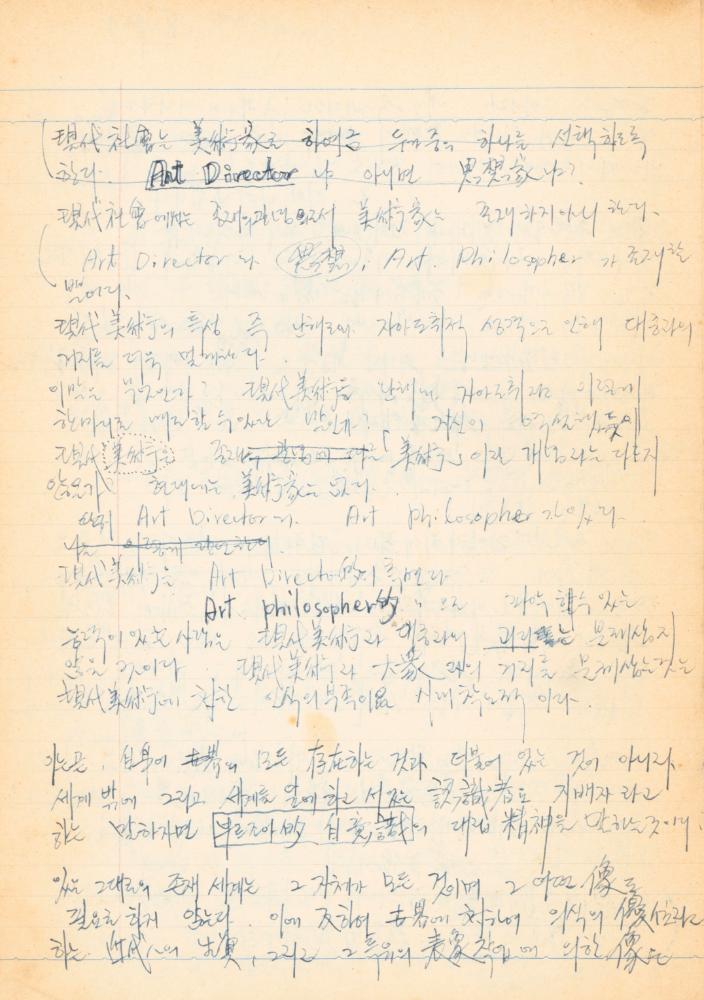 現代社會는 美術家로 하여금 두가중의 하나를 선택하도록
한다. Art Director 냐 아니면 思想家냐?
現代社會에서는 존재의 美術家는 존재하지 아니 한다.
Art Director 나 思想, Art. Philosopher 가 존재할
뿐이다.
現代美術의 특성 즉 난해로와 자아도취적 성격으로 인해 대중과의
거리를 더욱 멀게한다.
이말은 무엇인가? 現代美術을 난해니 자아도취라고 이렇게
한마디로 매도할 수 있는 말인가? 자신이
現代美術은 존재 「美術」이란 개념과는 다르지
않은가 현대에는 美術家는 없다.
단지 Art Director와 Art philosopher 가 있다.
나는 이렇게 판단한다.
現代美術은 Art Director的인 측면과
Art philosopher的 으로 파악할 수 있는
능력이 있는 사람은 現代美術과 대중과의 괴리는 문제삼지
않을 것이다. 現代美術과 大衆과의 거리를 문제삼는 것은
現代美術에 대한 인식의 부족이며 시대착오적이다.
自身이 世界의 모든 存在하는 것과 더불어 있는 것이 아니라
세계 밖에 그리고 세계를 앞에 하고 서있는 認識者로 지배자라고
하는 말하자면 부르즈아的 自意識의 대립 精神을 말하는 것이다.
있는 그대로의 존재 세계는 그 자체가 모든 것이며 그 어떤 像도
필요로 하지 않는다. 이에 反하여 世界에 対하여 의식의 優位라고
하는 近代人의 , 그리고 그 특유의 表象작업에 의한 像은